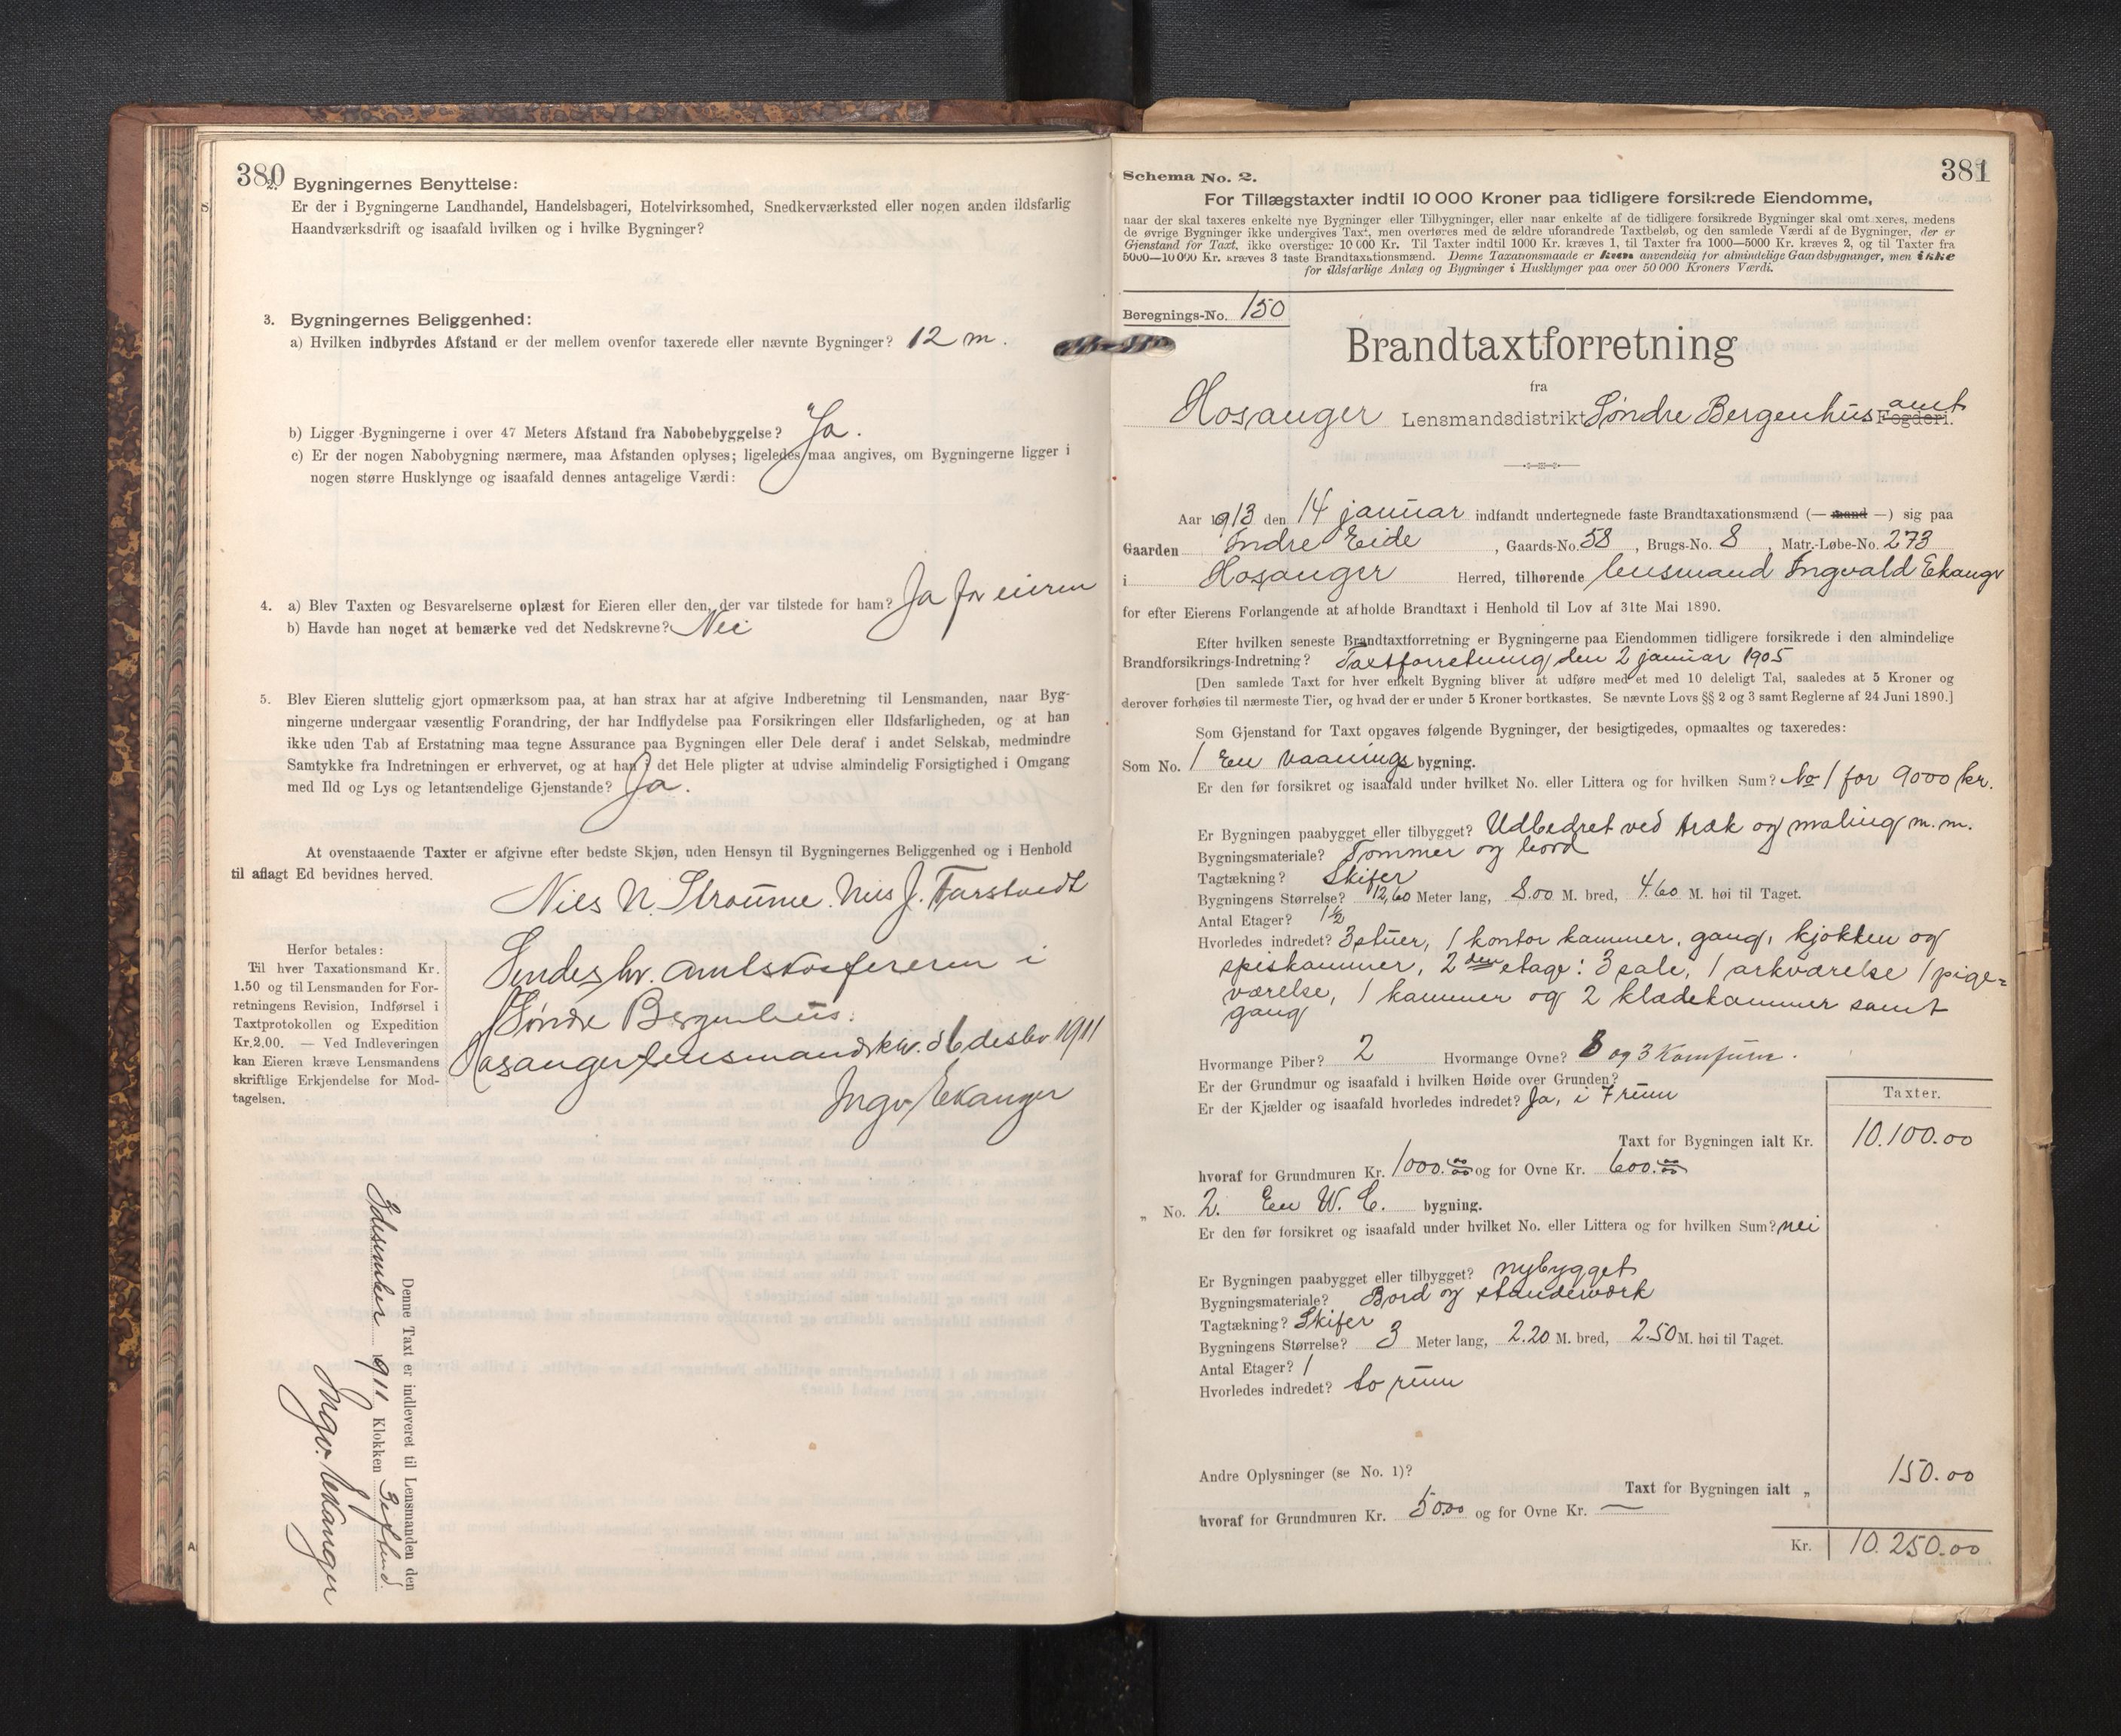 380
2. Bygningernes Benyttelse:
Er der i Bygningerne Landhandel, Handelsbageri, Hotelvirksomhed, Snedkerværksted eller nogen anden ildsfarlig
Haandværksdrift og isaafald hvilken og i hvilke Bygninger?
3. Bygningernes Beliggenhed:
a) Hvilken indbyrdes Afstand er der mellem ovenfor taxerede eller nævnte Bygninger? 12 m.
b) Ligger Bygningerne i over 47 Meters Afstand fra Nabobebyggelse? Ja.
c) Er der nogen Nabobygning nærmere, maa Afstanden oplyses; ligeledes maa angives, om Bygningerne ligger i
nogen større Husklynge og isaafald dennes antagelige Værdi:
4. a) Blev Taxten og Besvarelserne oplæst for Eieren eller den, der var tilstede for ham? Ja for eieren
b) Havde han noget at bemærke ved det Nedskrevne? Nei
5. Blev Eieren sluttelig gjort opmærksom paa, at han strax har at afgive Indberetning til Lensmanden, naar Byg-
ningerne undergaar væsentlig Forandring, der har Indflydelse paa Forsikringen eller Ildsfarligheden, og at han
ikke uden Tab af Erstatning maa tegne Assurance paa Bygningen eller Dele deraf i andet Selskab, medmindre
Samtykke fra Indretningen er erhvervet, og at han i det Hele pligter at udvise almindelig Forsigtighed i Omgang
med Ild og Lys og letantændelige Gjenstande? Ja.
At ovenstaaende Taxter er afgivne efter bedste Skjøn, uden Hensyn til Bygningernes Beliggenhed og i Henhold
til aflagt Ed bevidnes herved.
Niels N. Straume. Nils J. Farstvedt
Herfor betales:
Til hver Taxationsmand Kr.
1.50 og til Lensmanden for For-
retningens Revision, Indførsel i
Taxtprotokollen og Expedition
Kr.2.00. — Ved Indleveringen
kan Eieren kræve Lensmandens
skriftlige Erkjendelse for Mod-
tagelsen.
Sendes hr. amtskassereren i
Søndre Bergenhus.
Hosanger lensmandskr. d 6 desbr 1911
Ingv. Ekanger
Denne Taxt er indleveret til Lensmanden den
3 desember 1911 Klokken
Ingv. Ekanger
381
Schema No. 2.
For Tillægstaxter indtil 10 000 Kroner paa tidligere forsikrede Eiendomme,
naar der skal taxeres enkelte nye Bygninger eller Tilbygninger, eller naar enkelte af de tidligere forsikrede Bygninger skal omtaxeres, medens
de øvrige Bygninger ikke undergives Taxt, men overføres med de ældre uforandrede Taxtbeløb, og den samlede Værdi af de Bygninger, der er
Gjenstand for Taxt, ikke overstiger 10 000 Kr. Til Taxter indtil 1000 Kr. kræves 1, til Taxter fra 1000—5000 Kr. kræves 2, og til Taxter fra
5000—10 000 Kr. kræves 3 faste Brandtaxationsmænd. Denne Taxationsmaade er kun anvendelig for almindelige Gaardsbygninger, men ikke
for ildsfarlige Anlæg og Bygninger i Husklynger paa over 50 000 Kroners Værdi.
Beregnings-No. 150
Brandtaxtforretning
fra
Hosanger Lensmandsdistrikt Søndre Bergenhus amt Fogderi.
Aar 1913 den 14 januar indfandt undertegnede faste Brandtaxationsmænd (— mand —) sig paa
Gaarden Indre Eide, Gaards-No. 58, Brugs-No. 8, Matr.-Løbe-No. 273
i Hosanger Herred, tilhørende lensmand Ingvald Ekanger
for efter Eierens Forlangende at afholde Brandtaxt i Henhold til Lov af 31te Mai 1890.
Efter hvilken seneste Brandtaxtforretning er Bygningerne paa Eiendommen tidligere forsikrede i den almindelige
Brandforsikrings-Indretning? Taxtforretning den 2 januar 1905
[Den samlede Taxt for hver enkelt Bygning bliver at udføre med et med 10 deleligt Tal, saaledes at 5 Kroner og
derover forhøies til nærmeste Tier, og hvad der er under 5 Kroner bortkastes. Se nævnte Lovs §§ 2 og 3 samt Reglerne af 24 Juni 1890.]
Som Gjenstand for Taxt opgaves følgende Bygninger, der besigtigedes, opmaaltes og taxeredes:
Som No. 1 En vaanings bygning.
Er den før forsikret og isaafald under hvilket No. eller Littera og for hvilken Sum? No 1 for 9000 kr.
Er Bygningen paabygget eller tilbygget? Udbedret ved træk og maling m.m.
Bygningsmateriale? Tømmer og bord
Tagtækning? Skifer
Bygningens Størrelse? 12,60 Meter lang, 8.00 M. bred, 4.60 M. høi til Taget.
Antal Etager? 1½
Hvorledes indredet? 3 stuer, 1 kontor kammer, gang, kjøkken og
spiskammer, 2den etage: 3 sale, 1 arkværelse 1 pige-
værelse, 1 kammer og 2 klædekammer samt
gang
Hvormange Piber? 2 Hvormange Ovne? 8 og 3 Komfurn.
Er der Grundmur og isaafald i hvilken Høide over Grunden?
Er der Kjælder og isaafald hvorledes indredet? Ja, i 7 rum
Taxter.
Taxt for Bygningen ialt Kr. 10.100.00
hvoraf for Grundmuren Kr. 1000.00 og for Ovne Kr. 600.00
„ No. 2. En W. C. bygning.
Er den før forsikret og isaafald under hvilket No. eller Littera og for hvilken Sum? nei
Er Bygningen paabygget eller tilbygget? nybygget
Bygningsmateriale? Bord og standerværk
Tagtækning? Skifer
Bygningens Størrelse? 3 Meter lang, 2.20 M. bred, 2.50 M. høi til Taget.
Antal Etager? 1
Hvorledes indredet? to rum
Andre Oplysninger (se No. 1)?
Taxt for Bygningen ialt „ 150.00
hvoraf for Grundmuren Kr. 50.00 og for Ovne Kr. —
Kr. 10.250.00